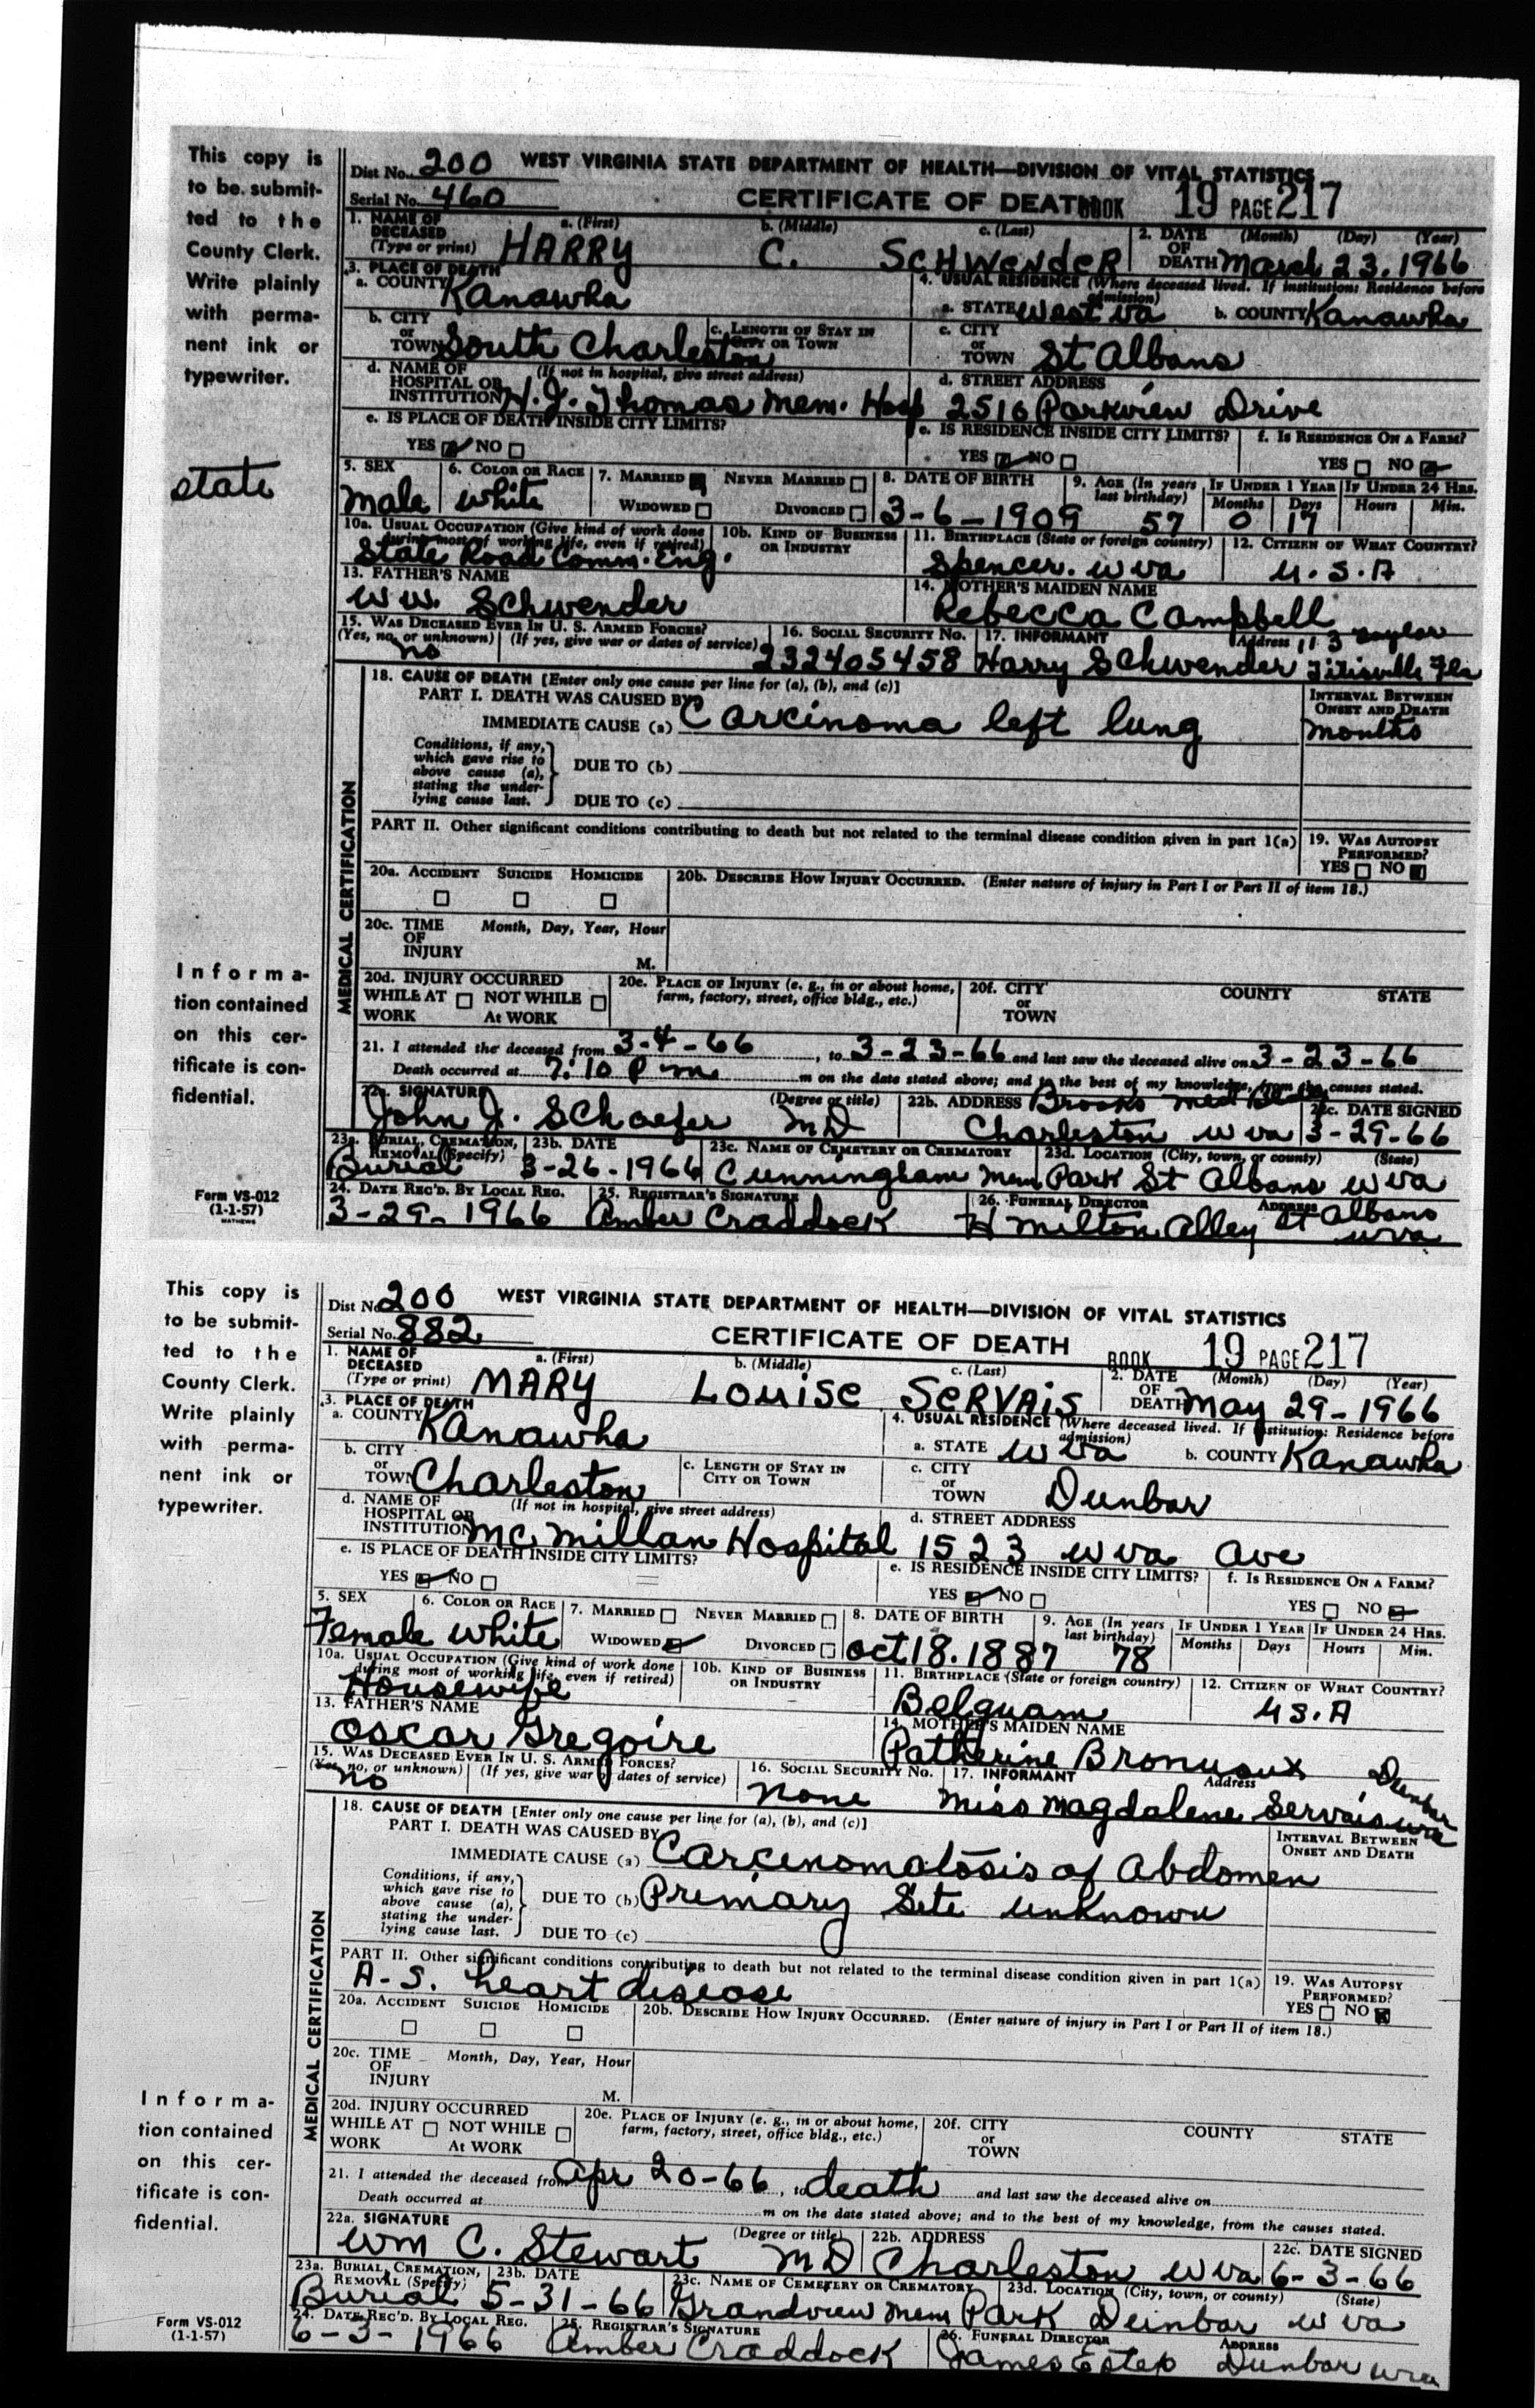 This copy is
to be submit-
ted to the
County Clerk.
Write plainly
with perma-
nent ink or
typewriter.
state
Informa-
tion contained
on this cer-
tificate is con-
fidential.
Form VS-012
(1-1-57)
MATHEWS
Dist No. 200 WEST VIRGINIA STATE DEPARTMENT OF HEALTH—DIVISION OF VITAL STATISTICS
Serial No. 460 CERTIFICATE OF DEATH BOOK 19 PAGE 217
1. NAME OF DECEASED (Type or print) a. (First) HARRY b. (Middle) C. c. (Last) SCHWENDER 2. DATE OF DEATH (Month) (Day) (Year) March 23. 1966
3. PLACE OF DEATH a. COUNTY Kanawha 4. USUAL RESIDENCE (Where deceased lived. If institution: Residence before admission) a. STATE West Va b. COUNTY Kanawha
b. CITY or TOWN South Charleston c. LENGTH OF STAY IN CITY OR TOWN c. CITY or TOWN St Albans
d. NAME OF HOSPITAL OR INSTITUTION (If not in hospital, give street address) H. J. Thomas Mem. Hosp d. STREET ADDRESS 2516 Parkview Drive
e. IS PLACE OF DEATH INSIDE CITY LIMITS? YES NO e. IS RESIDENCE INSIDE CITY LIMITS? YES NO f. IS RESIDENCE ON A FARM? YES NO
5. SEX male 6. COLOR OR RACE white 7. MARRIED NEVER MARRIED WIDOWED DIVORCED 8. DATE OF BIRTH 3-6-1909 9. AGE (In years last birthday) 57 IF UNDER 1 YEAR Months 0 Days 17 IF UNDER 24 HRS. Hours Min.
10a. USUAL OCCUPATION (Give kind of work done during most of working life, even if retired) State Road Comm. Eng. 10b. KIND OF BUSINESS OR INDUSTRY 11. BIRTHPLACE (State or foreign country) Spencer. W Va 12. CITIZEN OF WHAT COUNTRY? U.S.A
13. FATHER'S NAME W W. Schwender 14. MOTHER'S MAIDEN NAME Rebecca Campbell
15. WAS DECEASED EVER IN U. S. ARMED FORCES? (Yes, no, or unknown) (If yes, give war or dates of service) no 16. SOCIAL SECURITY No. 232405458 17. INFORMANT Harry Schwender Address 113 Titisville Fla
MEDICAL CERTIFICATION
18. CAUSE OF DEATH [Enter only one cause per line for (a), (b), and (c)]
PART I. DEATH WAS CAUSED BY: INTERVAL BETWEEN ONSET AND DEATH
IMMEDIATE CAUSE (a) Carcinoma left lung months
Conditions, if any, which gave rise to above cause (a), stating the under-lying cause last. DUE TO (b)
DUE TO (c)
PART II. Other significant conditions contributing to death but not related to the terminal disease condition given in part 1(a) 19. WAS AUTOPSY PERFORMED? YES NO
20a. ACCIDENT SUICIDE HOMICIDE 20b. DESCRIBE HOW INJURY OCCURRED. (Enter nature of injury in Part I or Part II of item 18.)
20c. TIME OF INJURY Month, Day, Year, Hour M.
20d. INJURY OCCURRED WHILE AT WORK NOT WHILE AT WORK 20e. PLACE OF INJURY (e. g., in or about home, farm, factory, street, office bldg., etc.) 20f. CITY or TOWN COUNTY STATE
21. I attended the deceased from 3-4-66, to 3-23-66 and last saw the deceased alive on 3-23-66
Death occurred at 7:10 P m m on the date stated above; and to the best of my knowledge, from the causes stated.
22a. SIGNATURE John J. Schaefer (Degree or title) MD 22b. ADDRESS Brooks Med Charleston W Va 22c. DATE SIGNED 3-29-66
23a. BURIAL, CREMATION, REMOVAL (Specify) Burial 23b. DATE 3-26-1966 23c. NAME OF CEMETERY OR CREMATORY Cunningham Mem Park 23d. LOCATION (City, town, or county) (State) St Albans W Va
24. DATE REC'D. BY LOCAL REG. 3-29-1966 25. REGISTRAR'S SIGNATURE Amber Craddock 26. FUNERAL DIRECTOR H Milton Alley ADDRESS St Albans W Va
This copy is
to be submit-
ted to the
County Clerk.
Write plainly
with perma-
nent ink or
typewriter.
Informa-
tion contained
on this cer-
tificate is con-
fidential.
Form VS-012
(1-1-57)
Dist No. 200 WEST VIRGINIA STATE DEPARTMENT OF HEALTH—DIVISION OF VITAL STATISTICS
Serial No. 882 CERTIFICATE OF DEATH BOOK 19 PAGE 217
1. NAME OF DECEASED (Type or print) a. (First) MARY b. (Middle) LOUISE c. (Last) SERVAIS 2. DATE OF DEATH (Month) (Day) (Year) May 29-1966
3. PLACE OF DEATH a. COUNTY Kanawha 4. USUAL RESIDENCE (Where deceased lived. If institution: Residence before admission) a. STATE W Va b. COUNTY Kanawha
b. CITY or TOWN Charleston c. LENGTH OF STAY IN CITY OR TOWN c. CITY or TOWN Dunbar
d. NAME OF HOSPITAL OR INSTITUTION (If not in hospital, give street address) Mc Millan Hospital d. STREET ADDRESS 1523 W Va Ave
e. IS PLACE OF DEATH INSIDE CITY LIMITS? YES NO e. IS RESIDENCE INSIDE CITY LIMITS? YES NO f. IS RESIDENCE ON A FARM? YES NO
5. SEX Female 6. COLOR OR RACE white 7. MARRIED NEVER MARRIED WIDOWED DIVORCED 8. DATE OF BIRTH Oct 18. 1887 9. AGE (In years last birthday) 78 IF UNDER 1 YEAR Months Days IF UNDER 24 HRS. Hours Min.
10a. USUAL OCCUPATION (Give kind of work done during most of working life, even if retired) Housewife 10b. KIND OF BUSINESS OR INDUSTRY 11. BIRTHPLACE (State or foreign country) Belguam 12. CITIZEN OF WHAT COUNTRY? U S. A
13. FATHER'S NAME Oscar Gregoire 14. MOTHER'S MAIDEN NAME Patherine
15. WAS DECEASED EVER IN U. S. ARMED FORCES? (Yes, no, or unknown) (If yes, give war or dates of service) no 16. SOCIAL SECURITY No. none 17. INFORMANT Miss Magdalene Servais Address Dunbar W Va
MEDICAL CERTIFICATION
18. CAUSE OF DEATH [Enter only one cause per line for (a), (b), and (c)]
PART I. DEATH WAS CAUSED BY: INTERVAL BETWEEN ONSET AND DEATH
IMMEDIATE CAUSE (a) Carcenomatosis of Abdomen
Conditions, if any, which gave rise to above cause (a), stating the under-lying cause last. DUE TO (b) Primary Site unknown
DUE TO (c)
PART II. Other significant conditions contributing to death but not related to the terminal disease condition given in part 1(a) 19. WAS AUTOPSY PERFORMED? YES NO
A-S. heart disease
20a. ACCIDENT SUICIDE HOMICIDE 20b. DESCRIBE HOW INJURY OCCURRED. (Enter nature of injury in Part I or Part II of item 18.)
20c. TIME OF INJURY Month, Day, Year, Hour M.
20d. INJURY OCCURRED WHILE AT WORK NOT WHILE AT WORK 20e. PLACE OF INJURY (e. g., in or about home, farm, factory, street, office bldg., etc.) 20f. CITY or TOWN COUNTY STATE
21. I attended the deceased from Apr 20-66, to death and last saw the deceased alive on
Death occurred at m on the date stated above; and to the best of my knowledge, from the causes stated.
22a. SIGNATURE Wm C. Stewart (Degree or title) MD 22b. ADDRESS Charleston W Va 22c. DATE SIGNED 6-3-66
23a. BURIAL, CREMATION, REMOVAL (Specify) Burial 23b. DATE 5-31-66 23c. NAME OF CEMETERY OR CREMATORY Grandview Mem Park 23d. LOCATION (City, town, or county) (State) Dunbar W Va
24. DATE REC'D. BY LOCAL REG. 6-3-1966 25. REGISTRAR'S SIGNATURE Amber Craddock 26. FUNERAL DIRECTOR James Estep ADDRESS Dunbar W Va